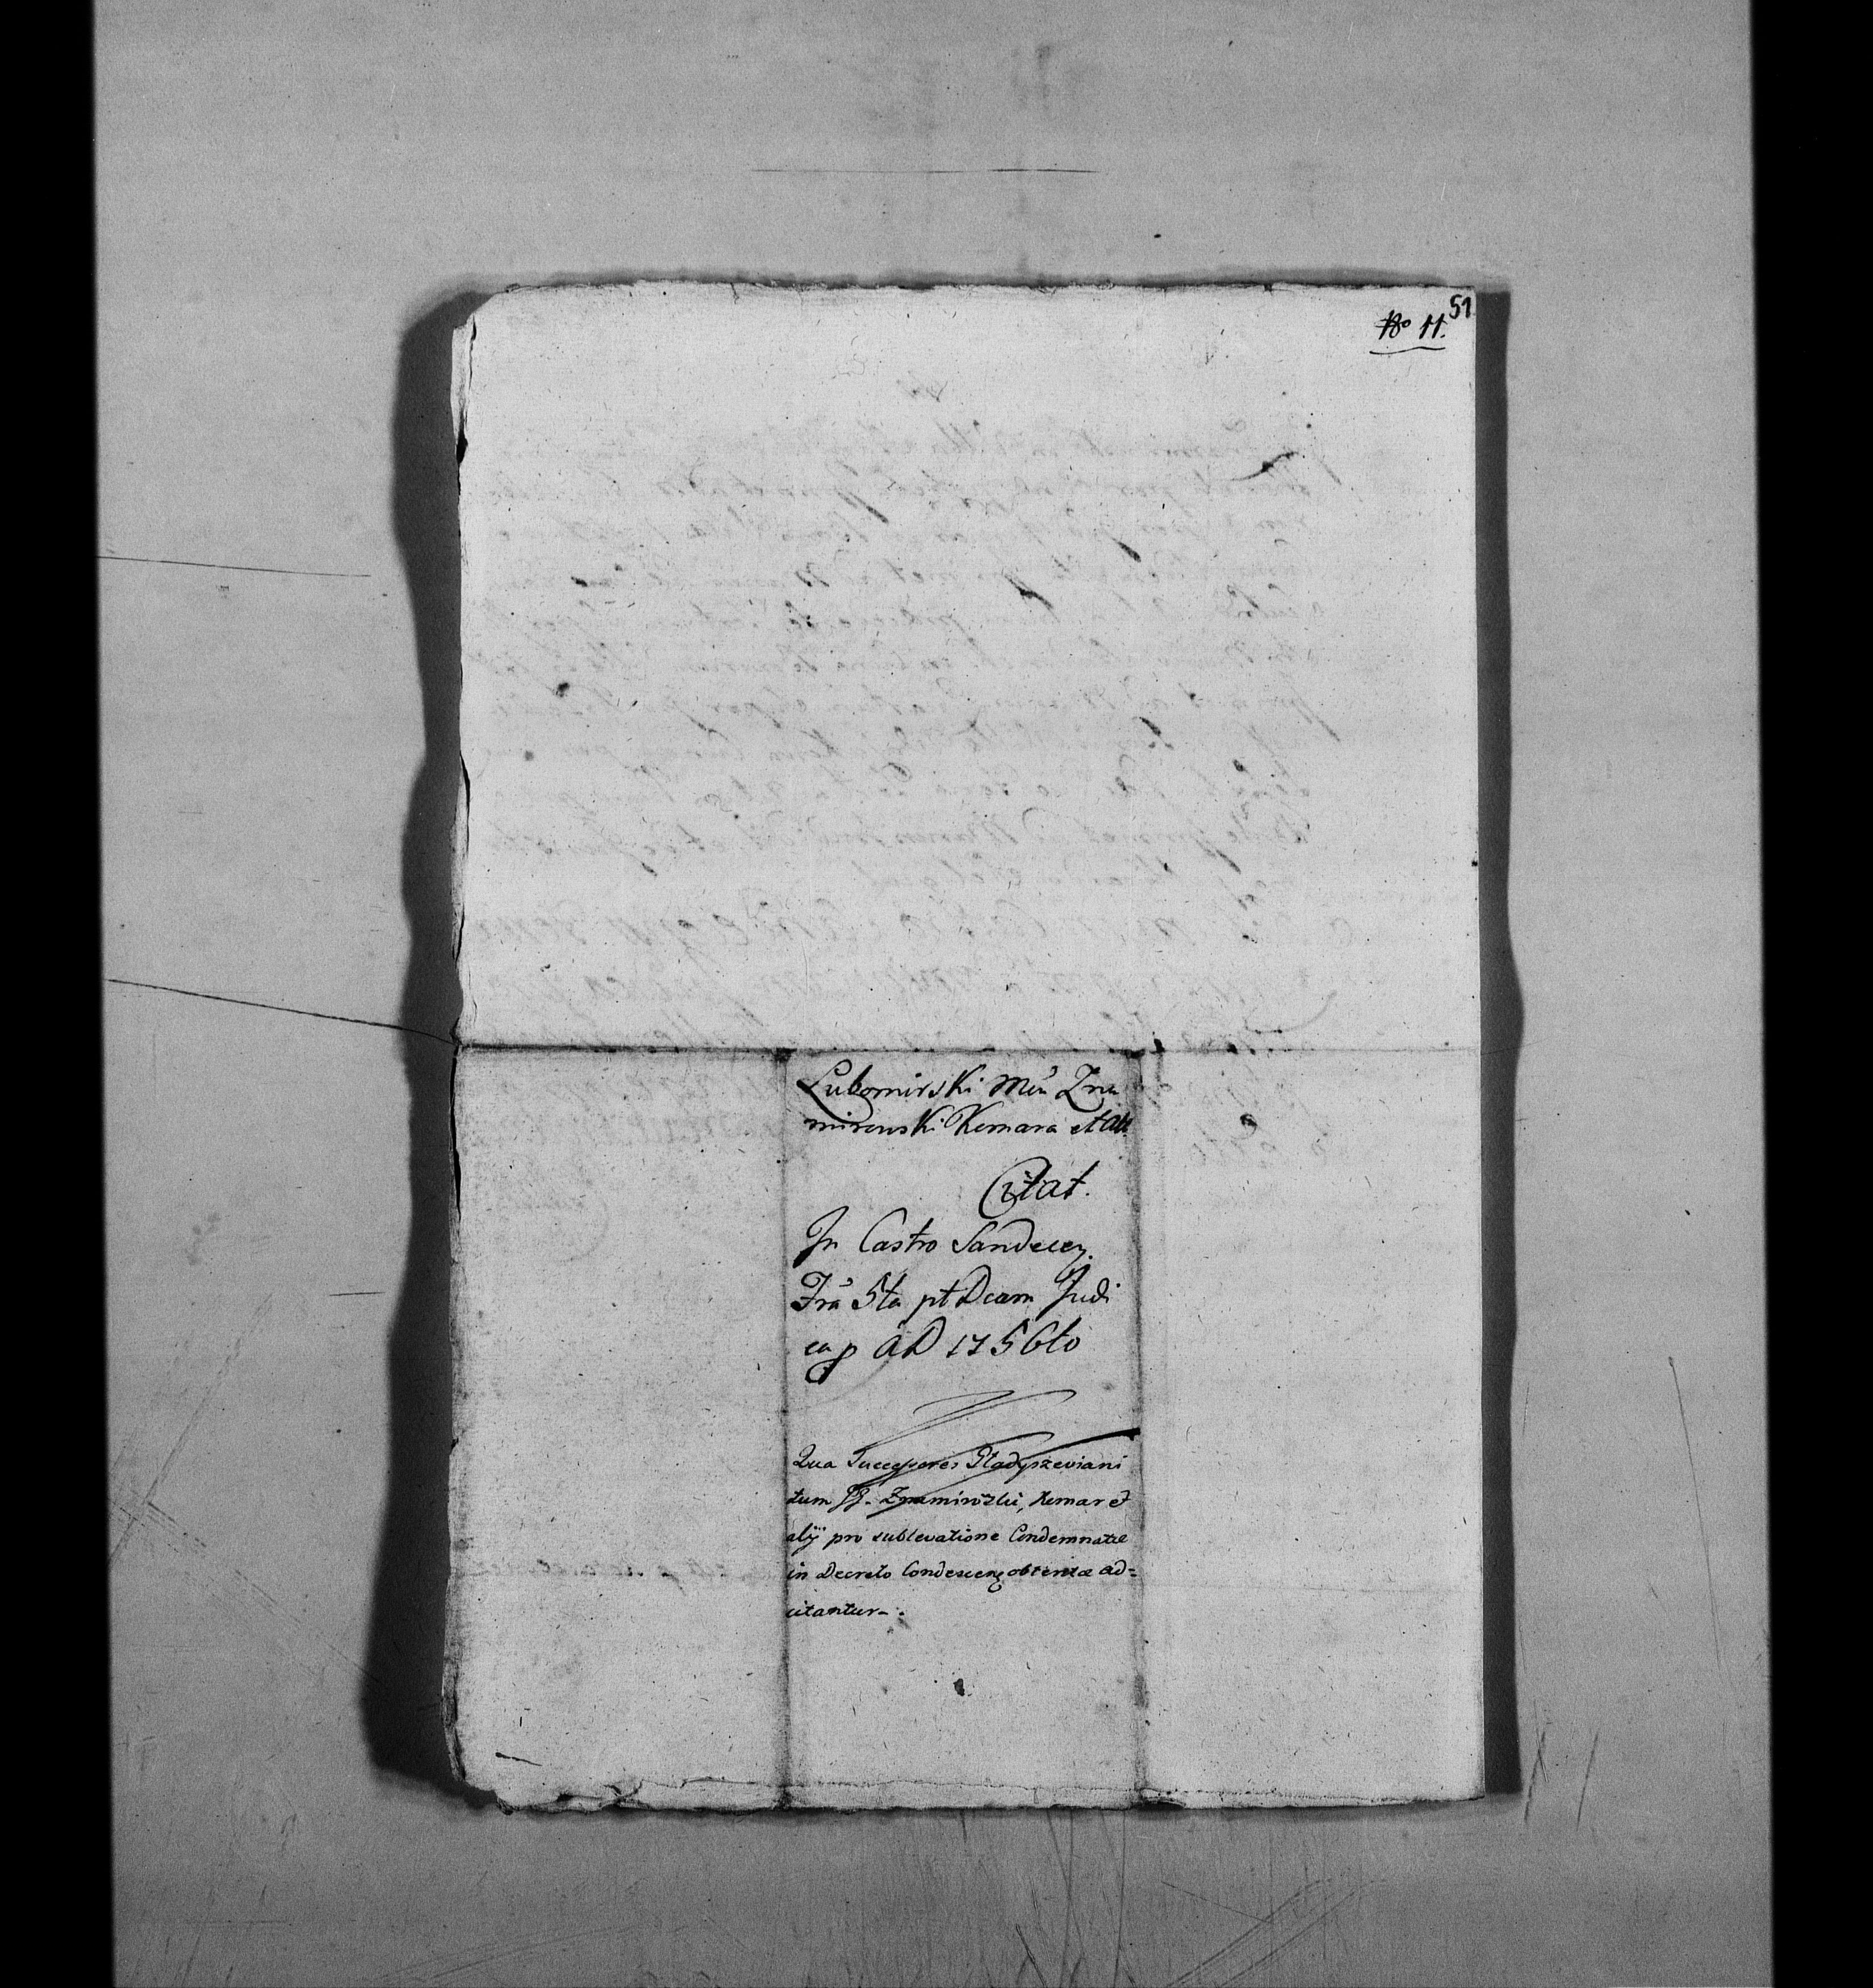 51
No 11.
Lubomirski Mŕi Zna
mirowski Komara et All.
Citat.
In Castro Sandecen.
Fria 5ta pt Dcam Judi
ca AD 1756to
Qua Successores Gładyszeviani
tum JJ. Znamirowski, Komar et
alij pro sublevatione Condemnatæ
in Decreto Condescen obtentæ ad=
citantur.